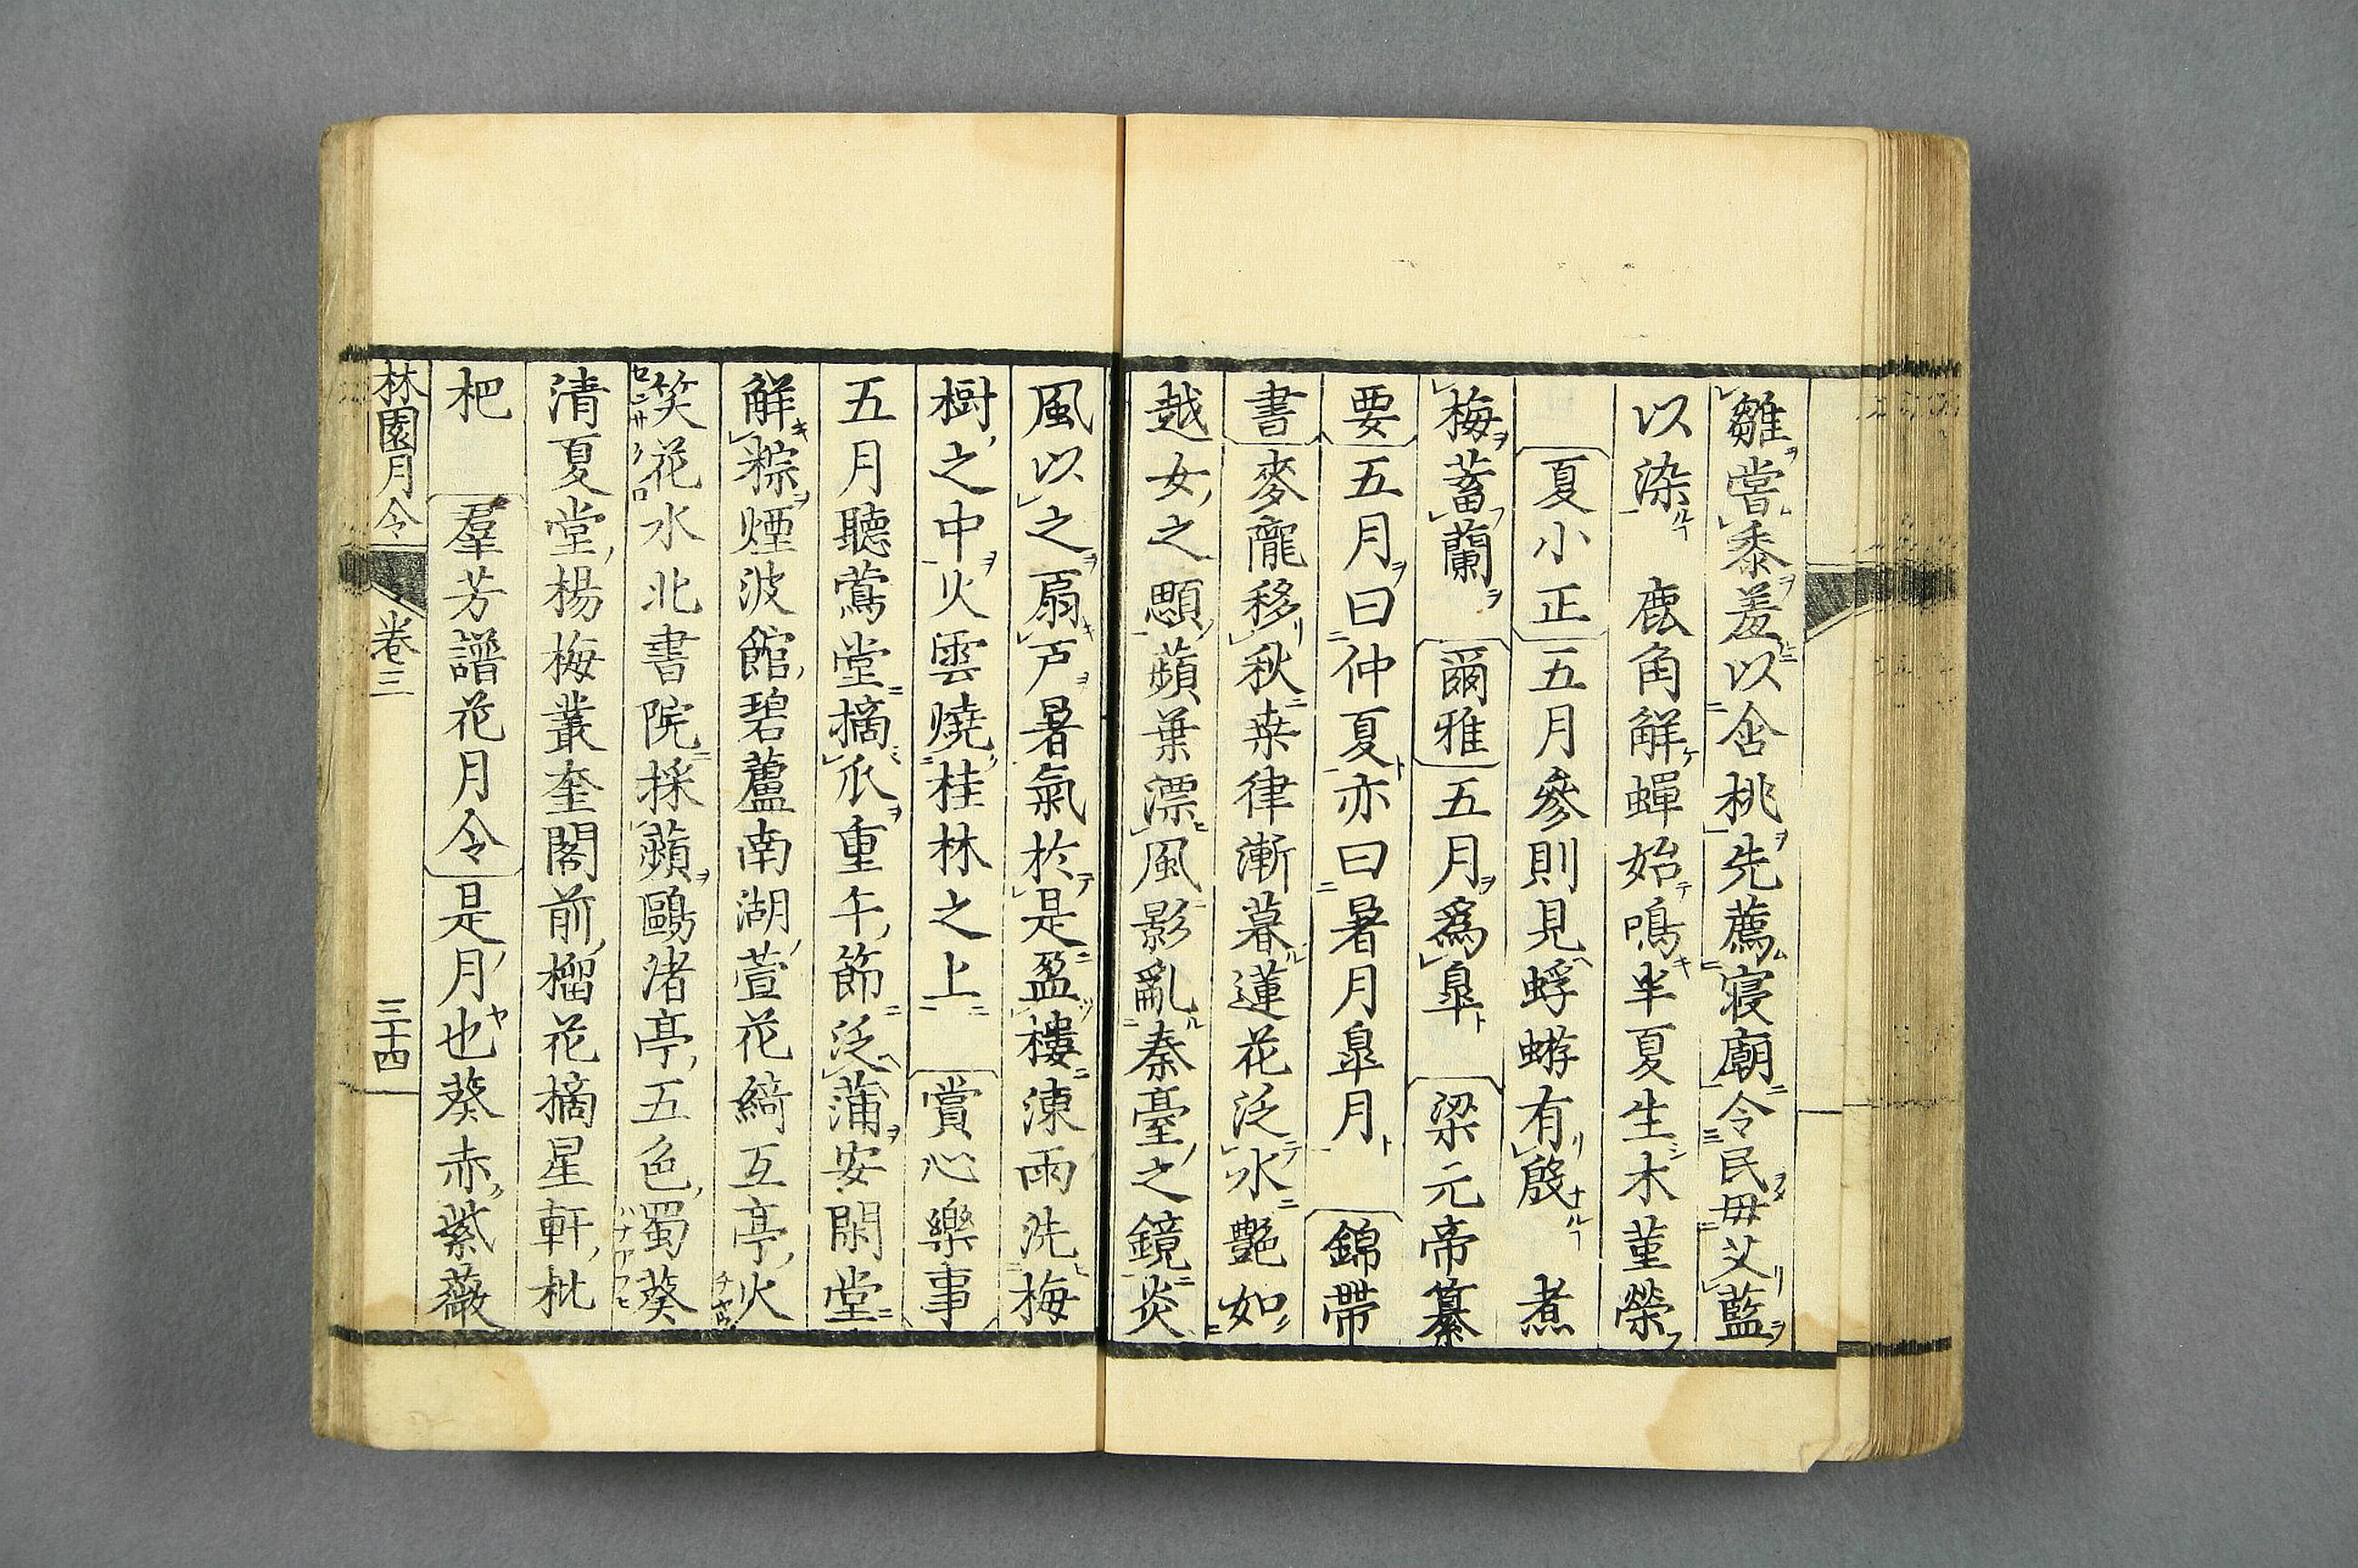 雛嘗黍羞以含桃先薦寢廟令民毋艾藍
以染　鹿角解蟬始鳴半夏生木菫榮
夏小正五月參則見蜉蝣有殷　煮
梅蓄蘭　爾雅五月爲皐　梁元帝纂
要五月曰仲夏亦曰暑月皐月　錦帶
書麥隴移秋桒律漸暮蓮花泛水艷如
越女之顋蘋葉漂風影亂秦臺之鏡炎
風以之扇戸暑氣於是盈樓凍雨洗梅
樹之中火雲燒桂林之上　賞心樂事
五月聽鶯堂摘瓜重午節泛蒲安閑堂
解粽煙波館碧蘆南湖萱花綺互亭火
笑花水北書院採蘋鷗渚亭五色蜀葵
清夏堂楊梅叢奎閣前榴花摘星軒枇
杷　羣芳譜花月令是月也葵赤紫薇
林園月令　卷三　三十四